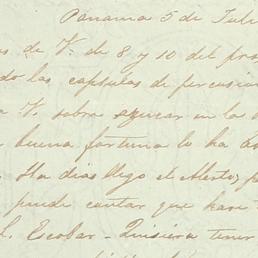 Panama 5 de Juli
s de V. de 8 y 10 del pro
do las capsulas de percusion
a V. sobre azucar en la
buena fortuna lo ha
Ha dias llego el Alerto, p
puede contar que hare
L. Escobar - Quisiera tener